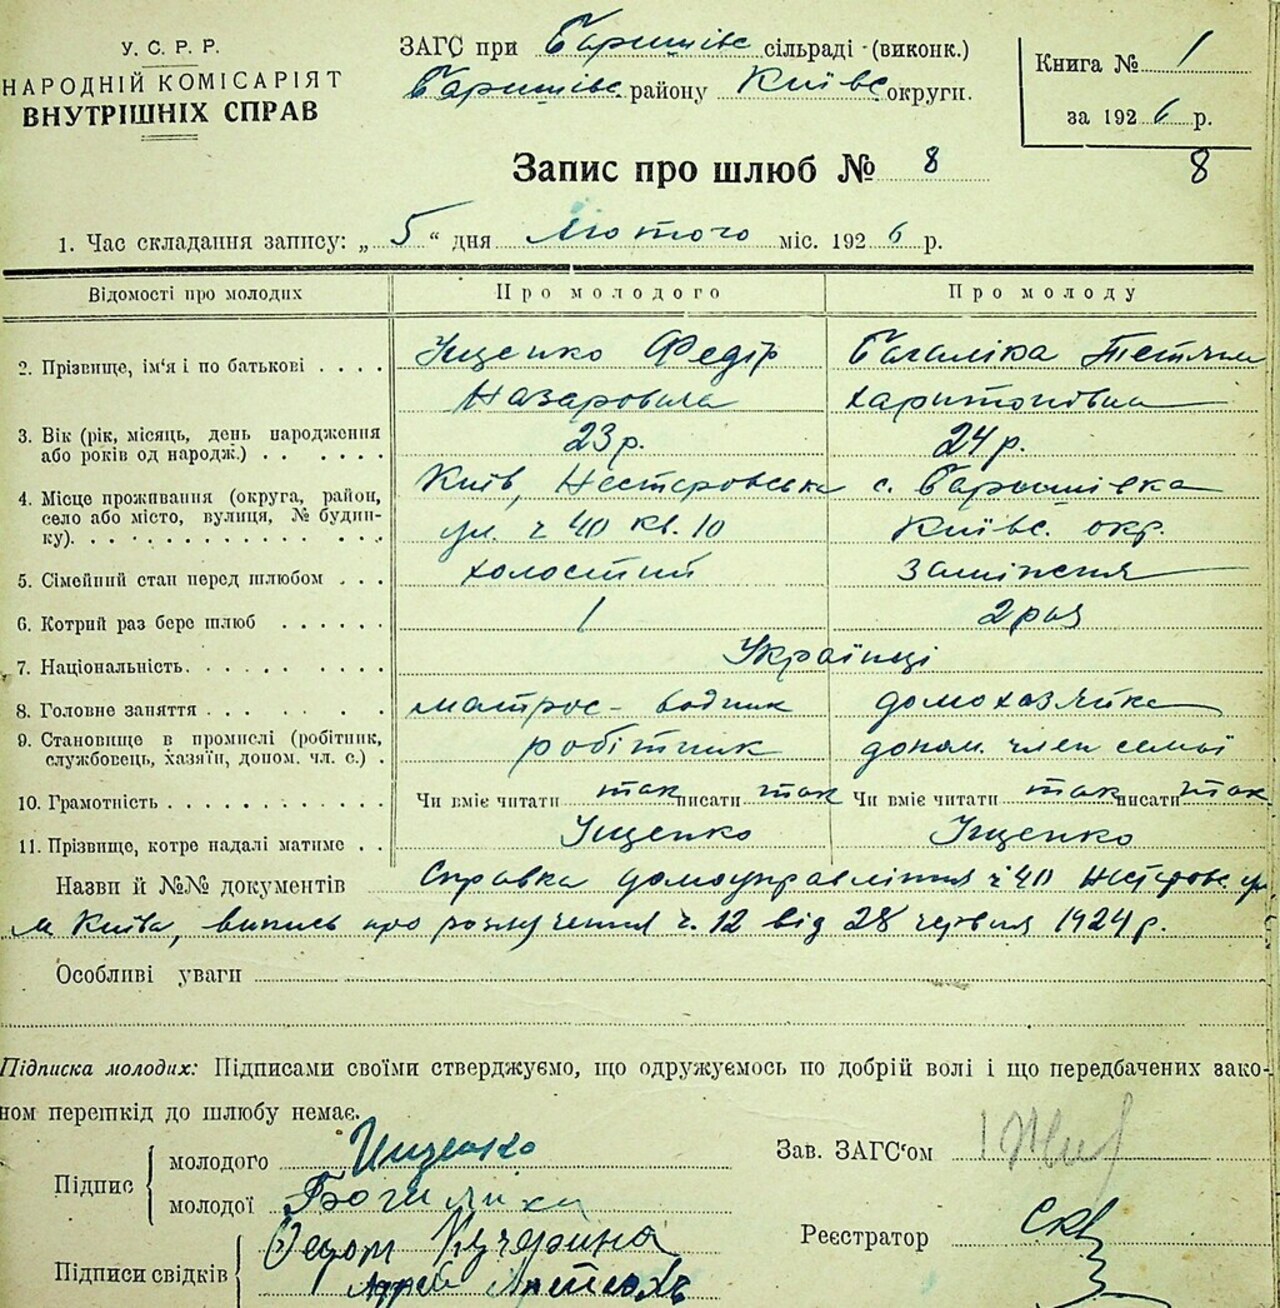 У. С. Р. Р.
НАРОДНІЙ КОМІСАРІЯТ
ВНУТРІШНІХ СПРАВ
ЗАГС при Баришівс сільраді (виконк.)
Баришівс району Київс округи.
Книга № 1
за 1926 р.
Запис про шлюб № 8
8
1. Час складання запису: „5“ дня лютого міс. 1926 р.
Відомості про молодих Про молодого Про молоду
2. Прізвище, ім'я і по батькові . . . . Іщенко Федір
Назаровича
Багаліка Тетяна
Харитонівна
3. Вік (рік, місяць, день народження
або років од народж.) . . . . . . 23 р. 24 р.
4. Місце проживання (округа, район,
село або місто, вулиця, № будин-
ку). . . . . . . . . . . . . . . Київ, Нестеровська
ул. ч 40 кв. 10
с. Баришівка
Київс. окр.
5. Сімейний стан перед шлюбом . . . холостий заміжня
6. Котрий раз бере шлюб . . . . . . 1 2 раз
7. Національність. . . . . . . . . Українці
8. Головне заняття . . . . . . . матрос - водник домохазяйка
9. Становище в промислі (робітник,
службовець, хазяїн, допом. чл. с.) . робітник допом. член семьї
10. Грамотність . . . . . . . . . . . . Чи вміє читати так писати так Чи вміє читати так писати так
11. Прізвище, котре надалі матиме . . Іщенко Іщенко
Назви й №№ документів Справка домоуправління ч 40 Нестров. ул.
м Київа, випись про розлучення ч. 12 від 28 червня 1924 р.
Особливі уваги
Підписка молодих: Підписами своїми стверджуємо, що одружуємось по добрій волі і що передбачених зако-
ном перешкід до шлюбу немає.
Підпис
молодого Ищенко
молодої Багалика
Зав. ЗАГС'ом
Підписи свідків
Федот Кучерина
Реєстратор